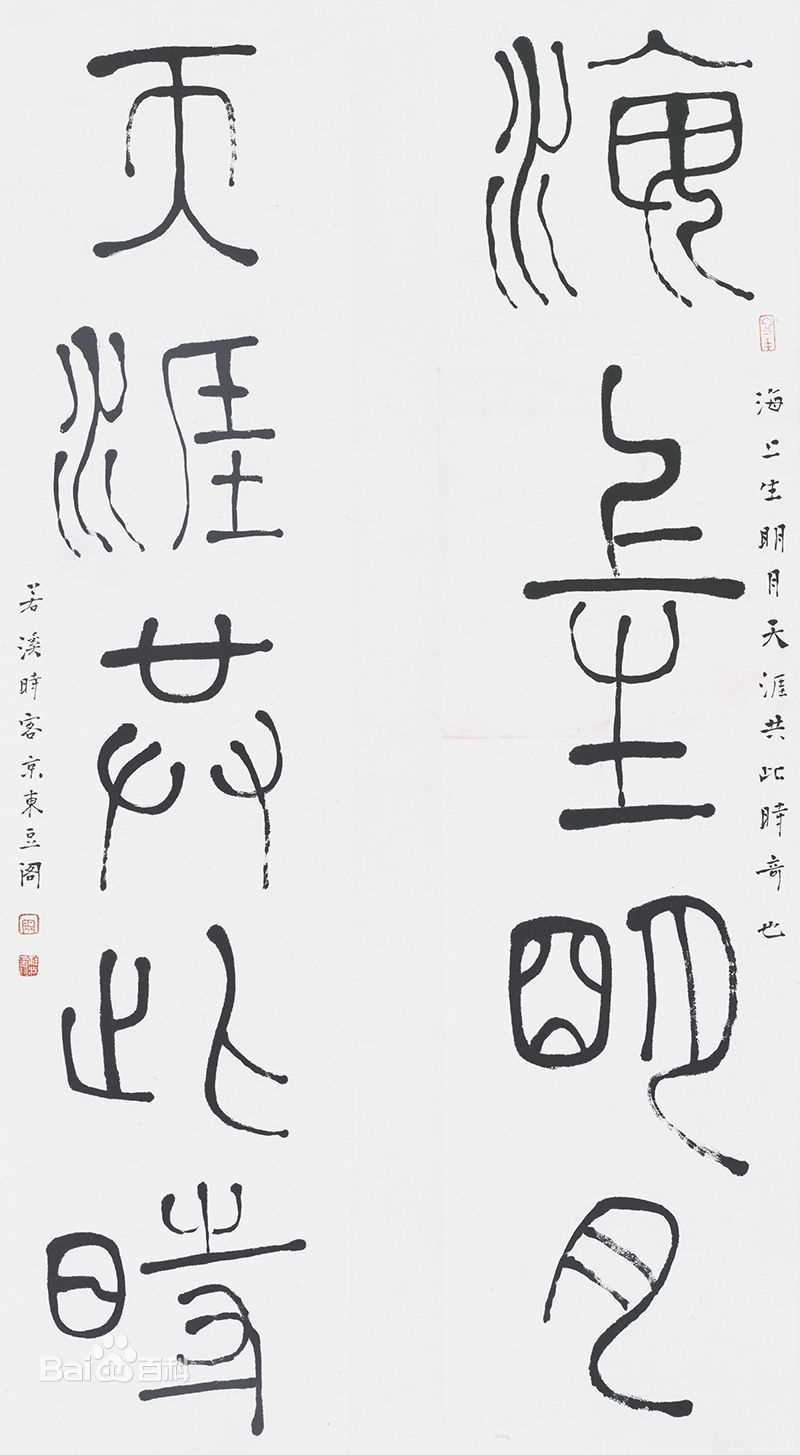 海上生明月
海上生明月天涯共此時奇也
天涯共此時
若溪時客京東豆阁
Bai百科